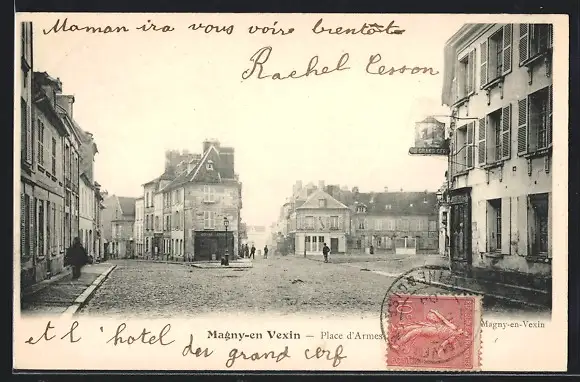 Maman ira vous voire bientôt
Rachel Cesson
GRAND CERF
Magny-en Vexin — Place d'Armes
Magny-en-Vexin
et l'hotel du grand cerf
10